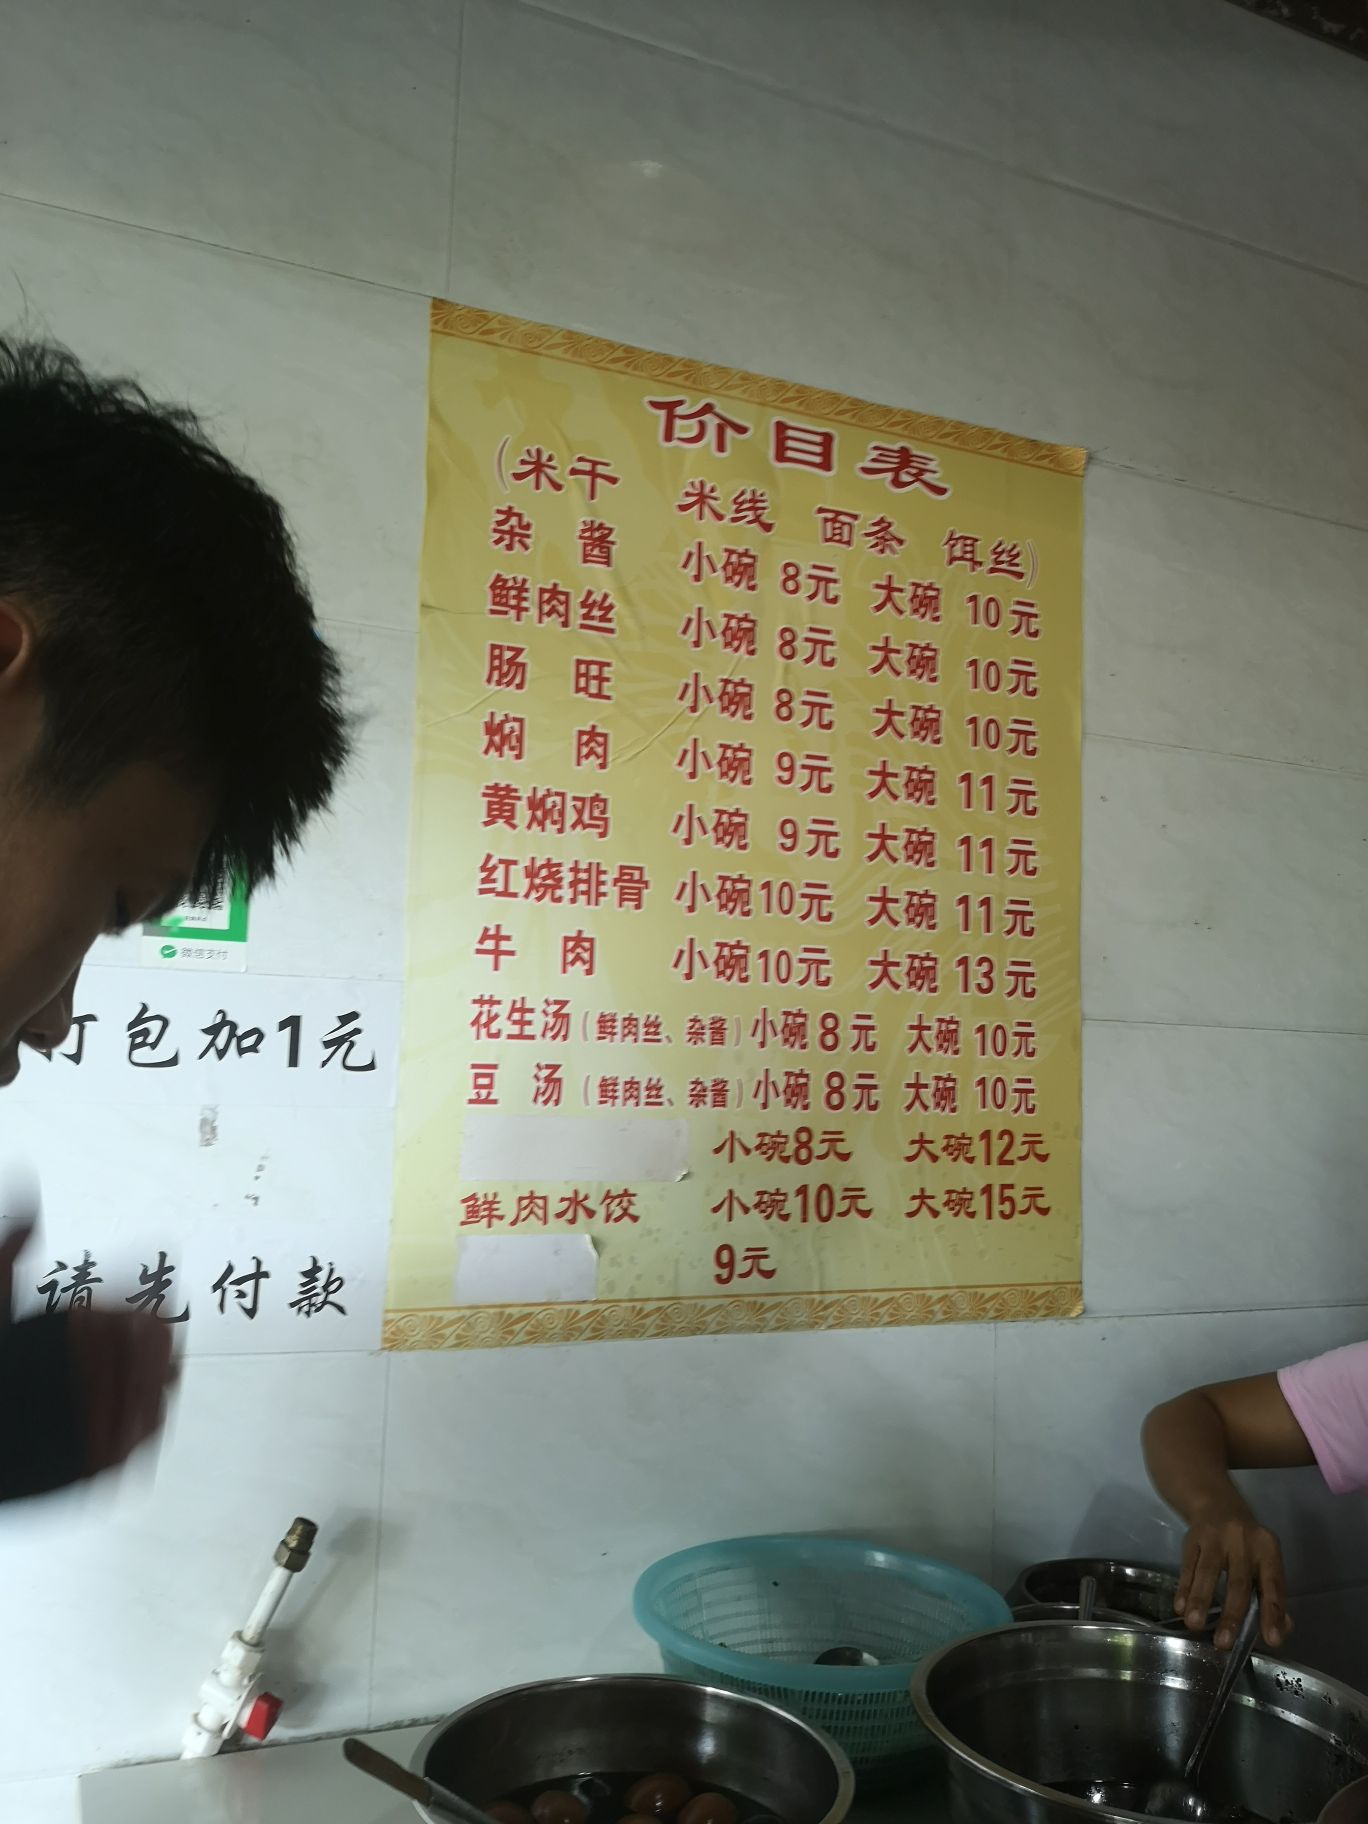 价目表
(米干 米线 面条 饵丝)
杂酱 小碗 8元 大碗 10元
鲜肉丝 小碗 8元 大碗 10元
肠旺 小碗 8元 大碗 10元
焖肉 小碗 9元 大碗 11元
黄焖鸡 小碗 9元 大碗 11元
红烧排骨 小碗10元 大碗 11元
牛肉 小碗10元 大碗 13元
花生汤(鲜肉丝、杂酱)小碗 8元 大碗 10元
豆汤(鲜肉丝、杂酱)小碗 8元 大碗 10元
小碗8元 大碗12元
鲜肉水饺 小碗10元 大碗15元
9元
微信支付
打包加1元
请先付款